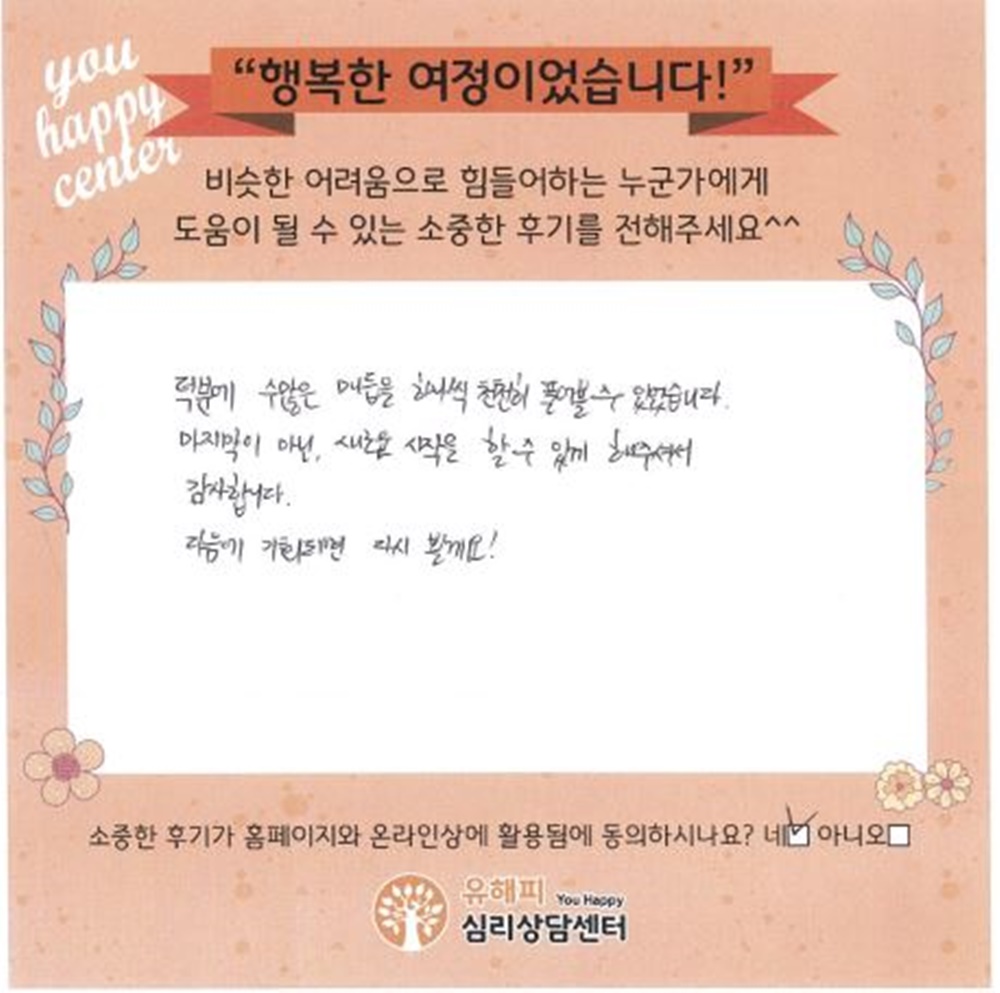 you
happy
center
“행복한 여정이었습니다!”
비슷한 어려움으로 힘들어하는 누군가에게
도움이 될 수 있는 소중한 후기를 전해주세요^^
덕분에 수많은 매듭을 하나씩 천천히 풀어볼 수 있었습니다.
마지막이 아닌, 새로운 시작을 할 수 있게 해주셔서
감사합니다.
다음에 기회되면 다시 볼게요!
소중한 후기가 홈페이지와 온라인상에 활용됨에 동의하시나요? 네☑ 아니오□
유해피 You Happy
심리상담센터